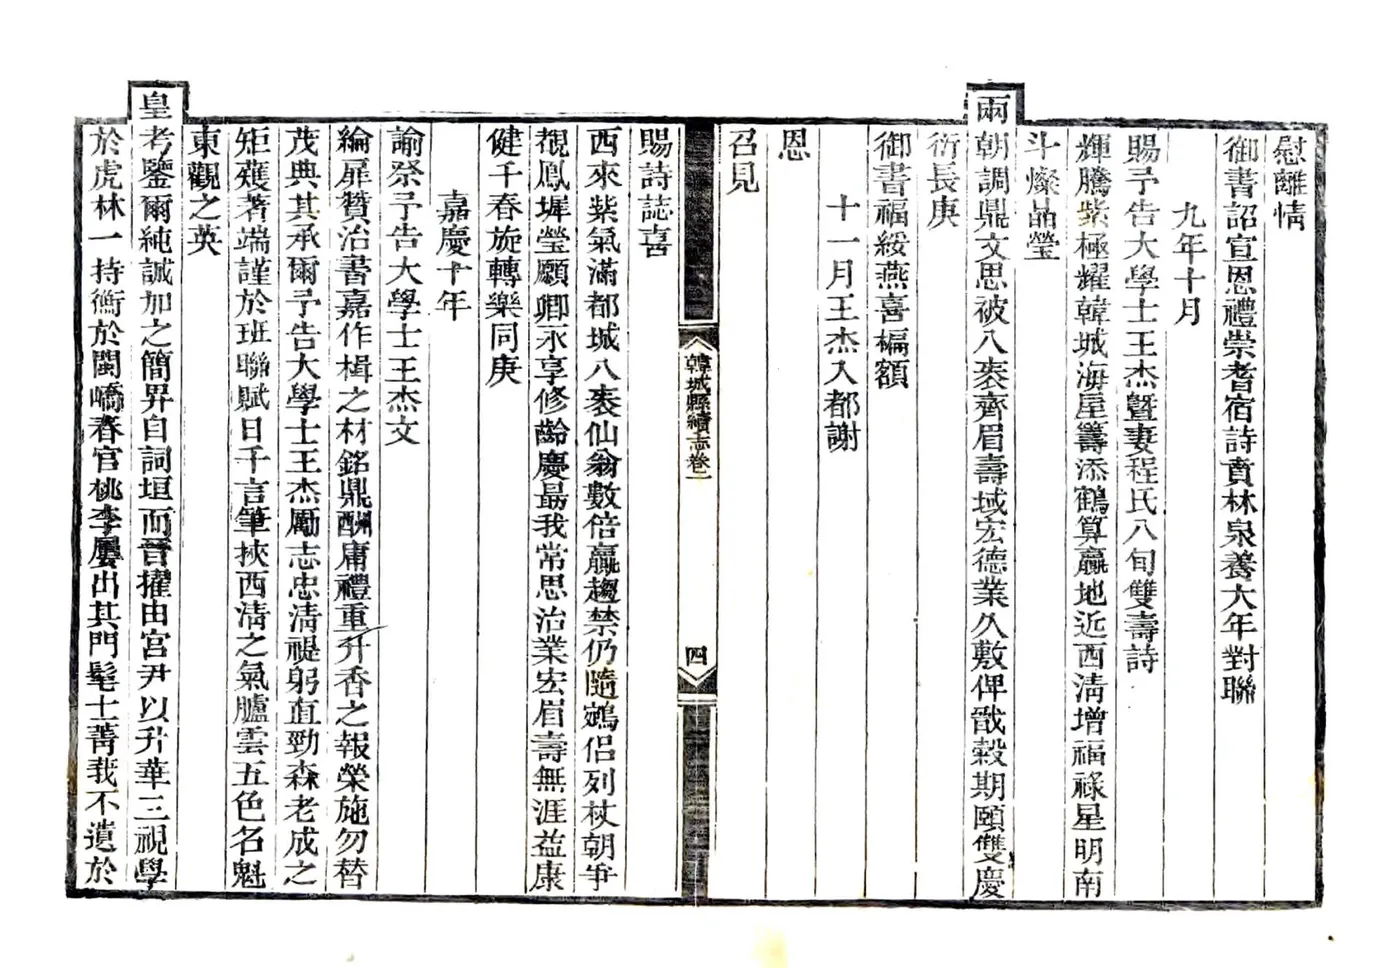 慰離情
御書詔宣恩禮崇耆宿詩賁林泉養大年對聯
九年十月
賜予告大學士王杰暨妻程氏八旬雙壽詩
輝騰紫極耀韓城海屋籌添鶴算贏地近西淸增福祿星明南
斗燦晶瑩
兩朝調鼎文思被八袠齊眉壽域宏德業久敷俾戩穀期頤雙慶
衍長庚
御書福綏燕喜楄額
十一月王杰入都謝
恩
召見
韓城縣續志卷二
四
賜詩誌喜
西來紫氣滿都城八袠仙翁數倍贏趨禁仍隨鵷侶列杖朝爭
覩鳳墀瑩願卿永享修齡慶最我常思治業宏眉壽無涯益康
健千春旋轉樂同庚
嘉慶十年
諭祭予告大學士王杰文
綸扉贊治書嘉作楫之材銘鼎酬庸禮重升香之報榮施勿替
茂典其承爾予告大學士王杰勵志忠淸禔躬直勁森老成之
矩矱著端謹於班聯賦日千言筆挾西淸之氣臚雲五色名魁
東觀之英
皇考鑒爾純誠加之簡畀自詞垣而晉擢由宮尹以升華三視學
於虎林一持衡於閩嶠春官桃李屢出其門髦士菁莪不遺於